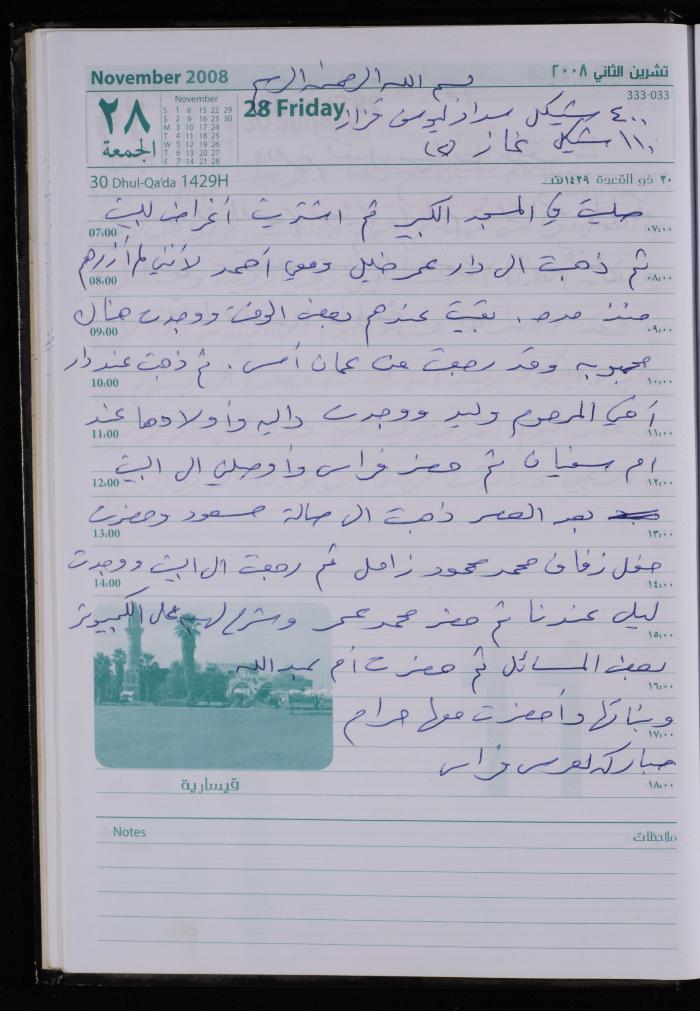 November 2008
تشرين الثاني ٢٠٠٨
بسم الله الرحمن الرحيم
333-033
٢٨
الجمعة
November
S 1 8 15 22 29
S 2 9 16 23 30
M 3 10 17 24
T 4 11 18 25
W 5 12 19 26
T 6 13 20 27
F 7 14 21 28
28 Friday
٤٠٠ شيكل سداد فراس
١١٠ شيكل غاز (٢)
30 Dhul-Qa'da 1429H
٣٠ ذو القعدة ١٤٢٩هـ
صليت في المسجد الكبير ثم اشتريت أغراض للبيت
07:00 ٠٧:٠٠
ثم ذهبت ال دار عمر خليل ومعي أحمد لأنني لم أزرهم
08:00 ٠٨:٠٠
منذ مدة. بقيت عندهم بعض الوقت ووجدت هناك
09:00 ٠٩:٠٠
محبوبه وقد رجعت من عمان أمس. ثم ذهبت عند دار
10:00 ١٠:٠٠
أخي المرحوم وليد ووجدت داليه وأولادها عند
11:00 ١١:٠٠
ام سفيان ثم حضر فراس وأوصلني ال البيت
12:00 ١٢:٠٠
بعد العصر ذهبت ال صالة مسعود وحضرت
13:00 ١٣:٠٠
حفل زفاف محمد محمود زامل ثم رجعت ال البيت ووجدت
14:00 ١٤:٠٠
ليلى عندنا ثم حضر محمد عمر وشرح لهم على الكمبيوتر
١٥:٠٠
بعض المسائل ثم حضرت أم عبدالله
١٦:٠٠
وبناتها وأحضرت معها حرام
١٧:٠٠
مباركه لعرس فراس
١٨:٠٠
قيسارية
Notes
ملاحظات